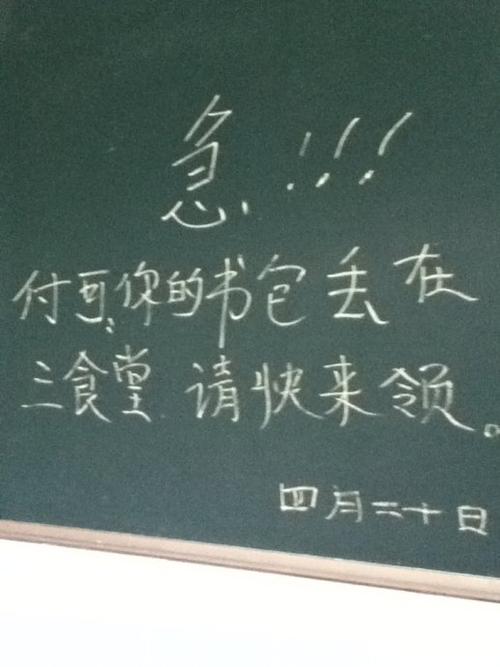 急!!!
付可:你的书包丢在
三食堂 请快来领。
四月二十日